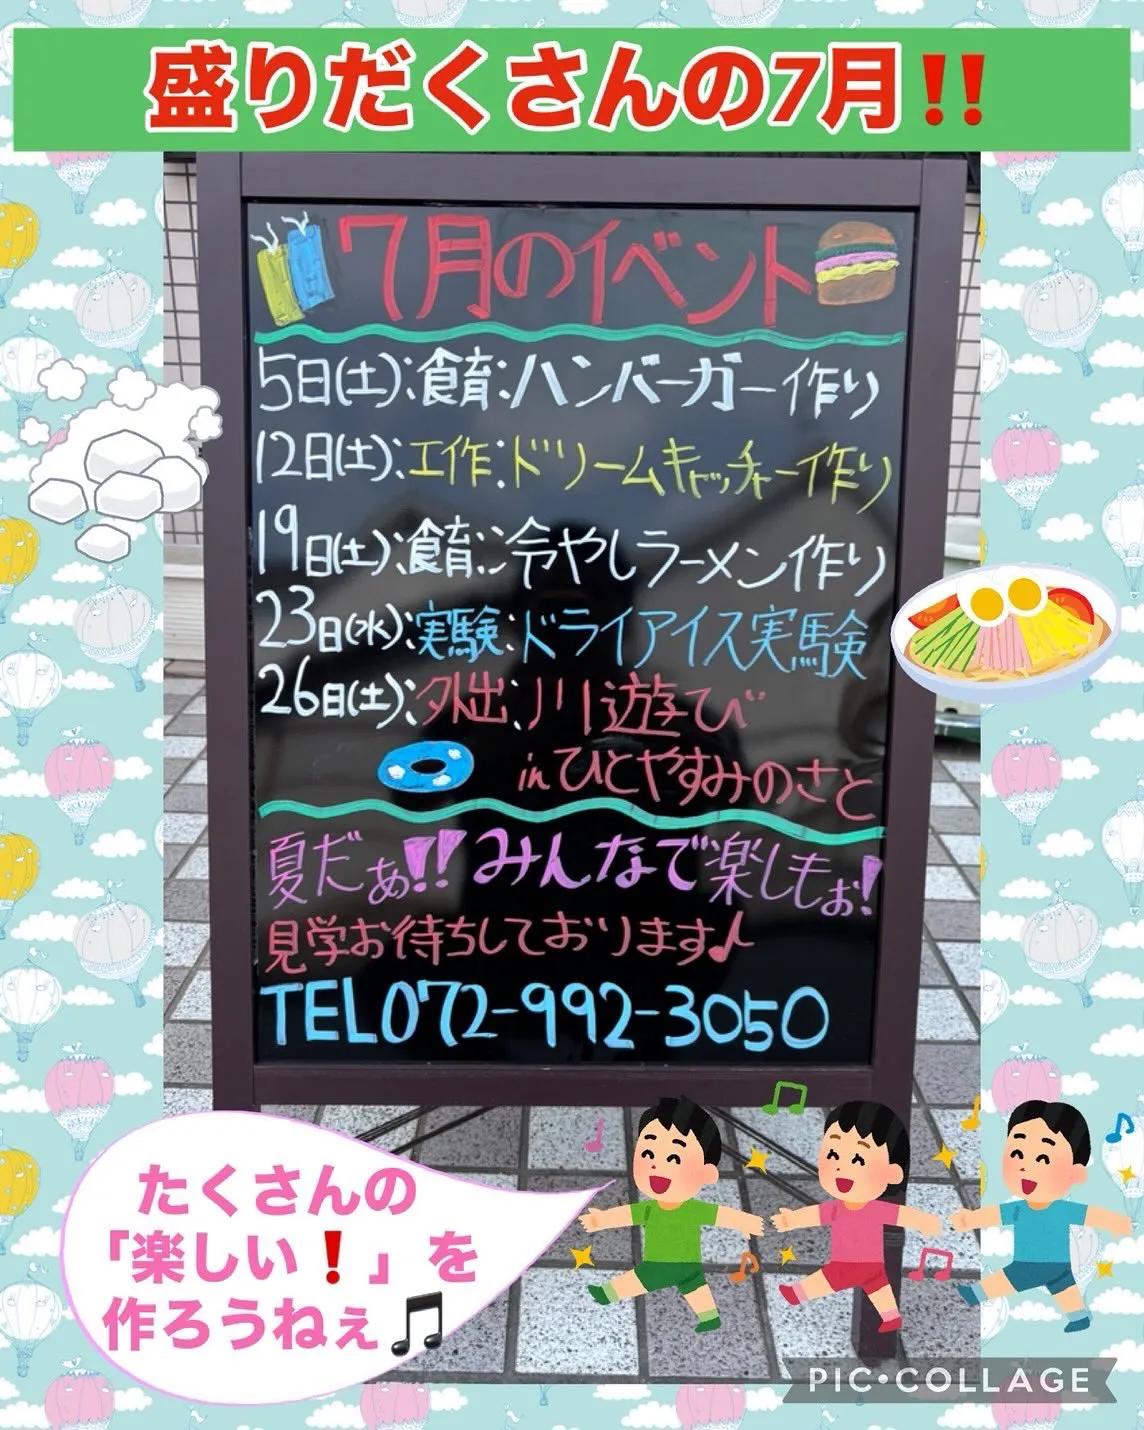 盛りだくさんの7月‼
7月のイベント
5日(土):食育:ハンバーガー作り
12日(土):工作:ドリームキャッチャー作り
19日(土):食育:冷やしラーメン作り
23日(水):実験:ドライアイス実験
26日(土):外出:川遊び
inひとやすみのさと
夏だぁ!!みんなで楽しもぉ!
見学お待ちしております♪
TEL072-992-3050
たくさんの
「楽しい❗」を
作ろうねぇ🎵
PIC•COLLAGE